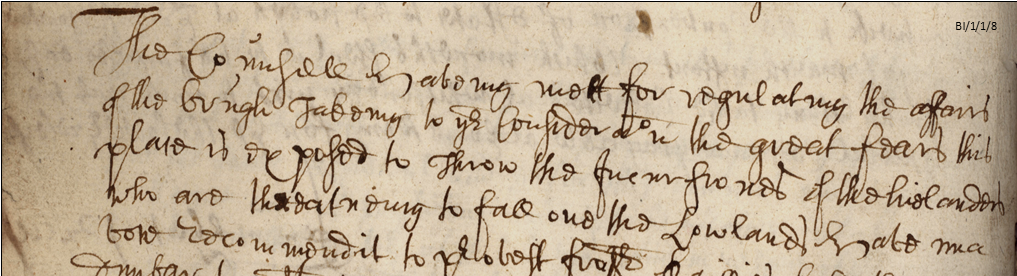 BI/1/1/8
The Counsell haveing mett for regulating the affairs
of the brugh Takeing to yr Consideraon the great fears this
place is exposed to throw the Incursiones of the hielanders
who are threatneing to fall one the Lowlands have una
vote Recommendit to provest